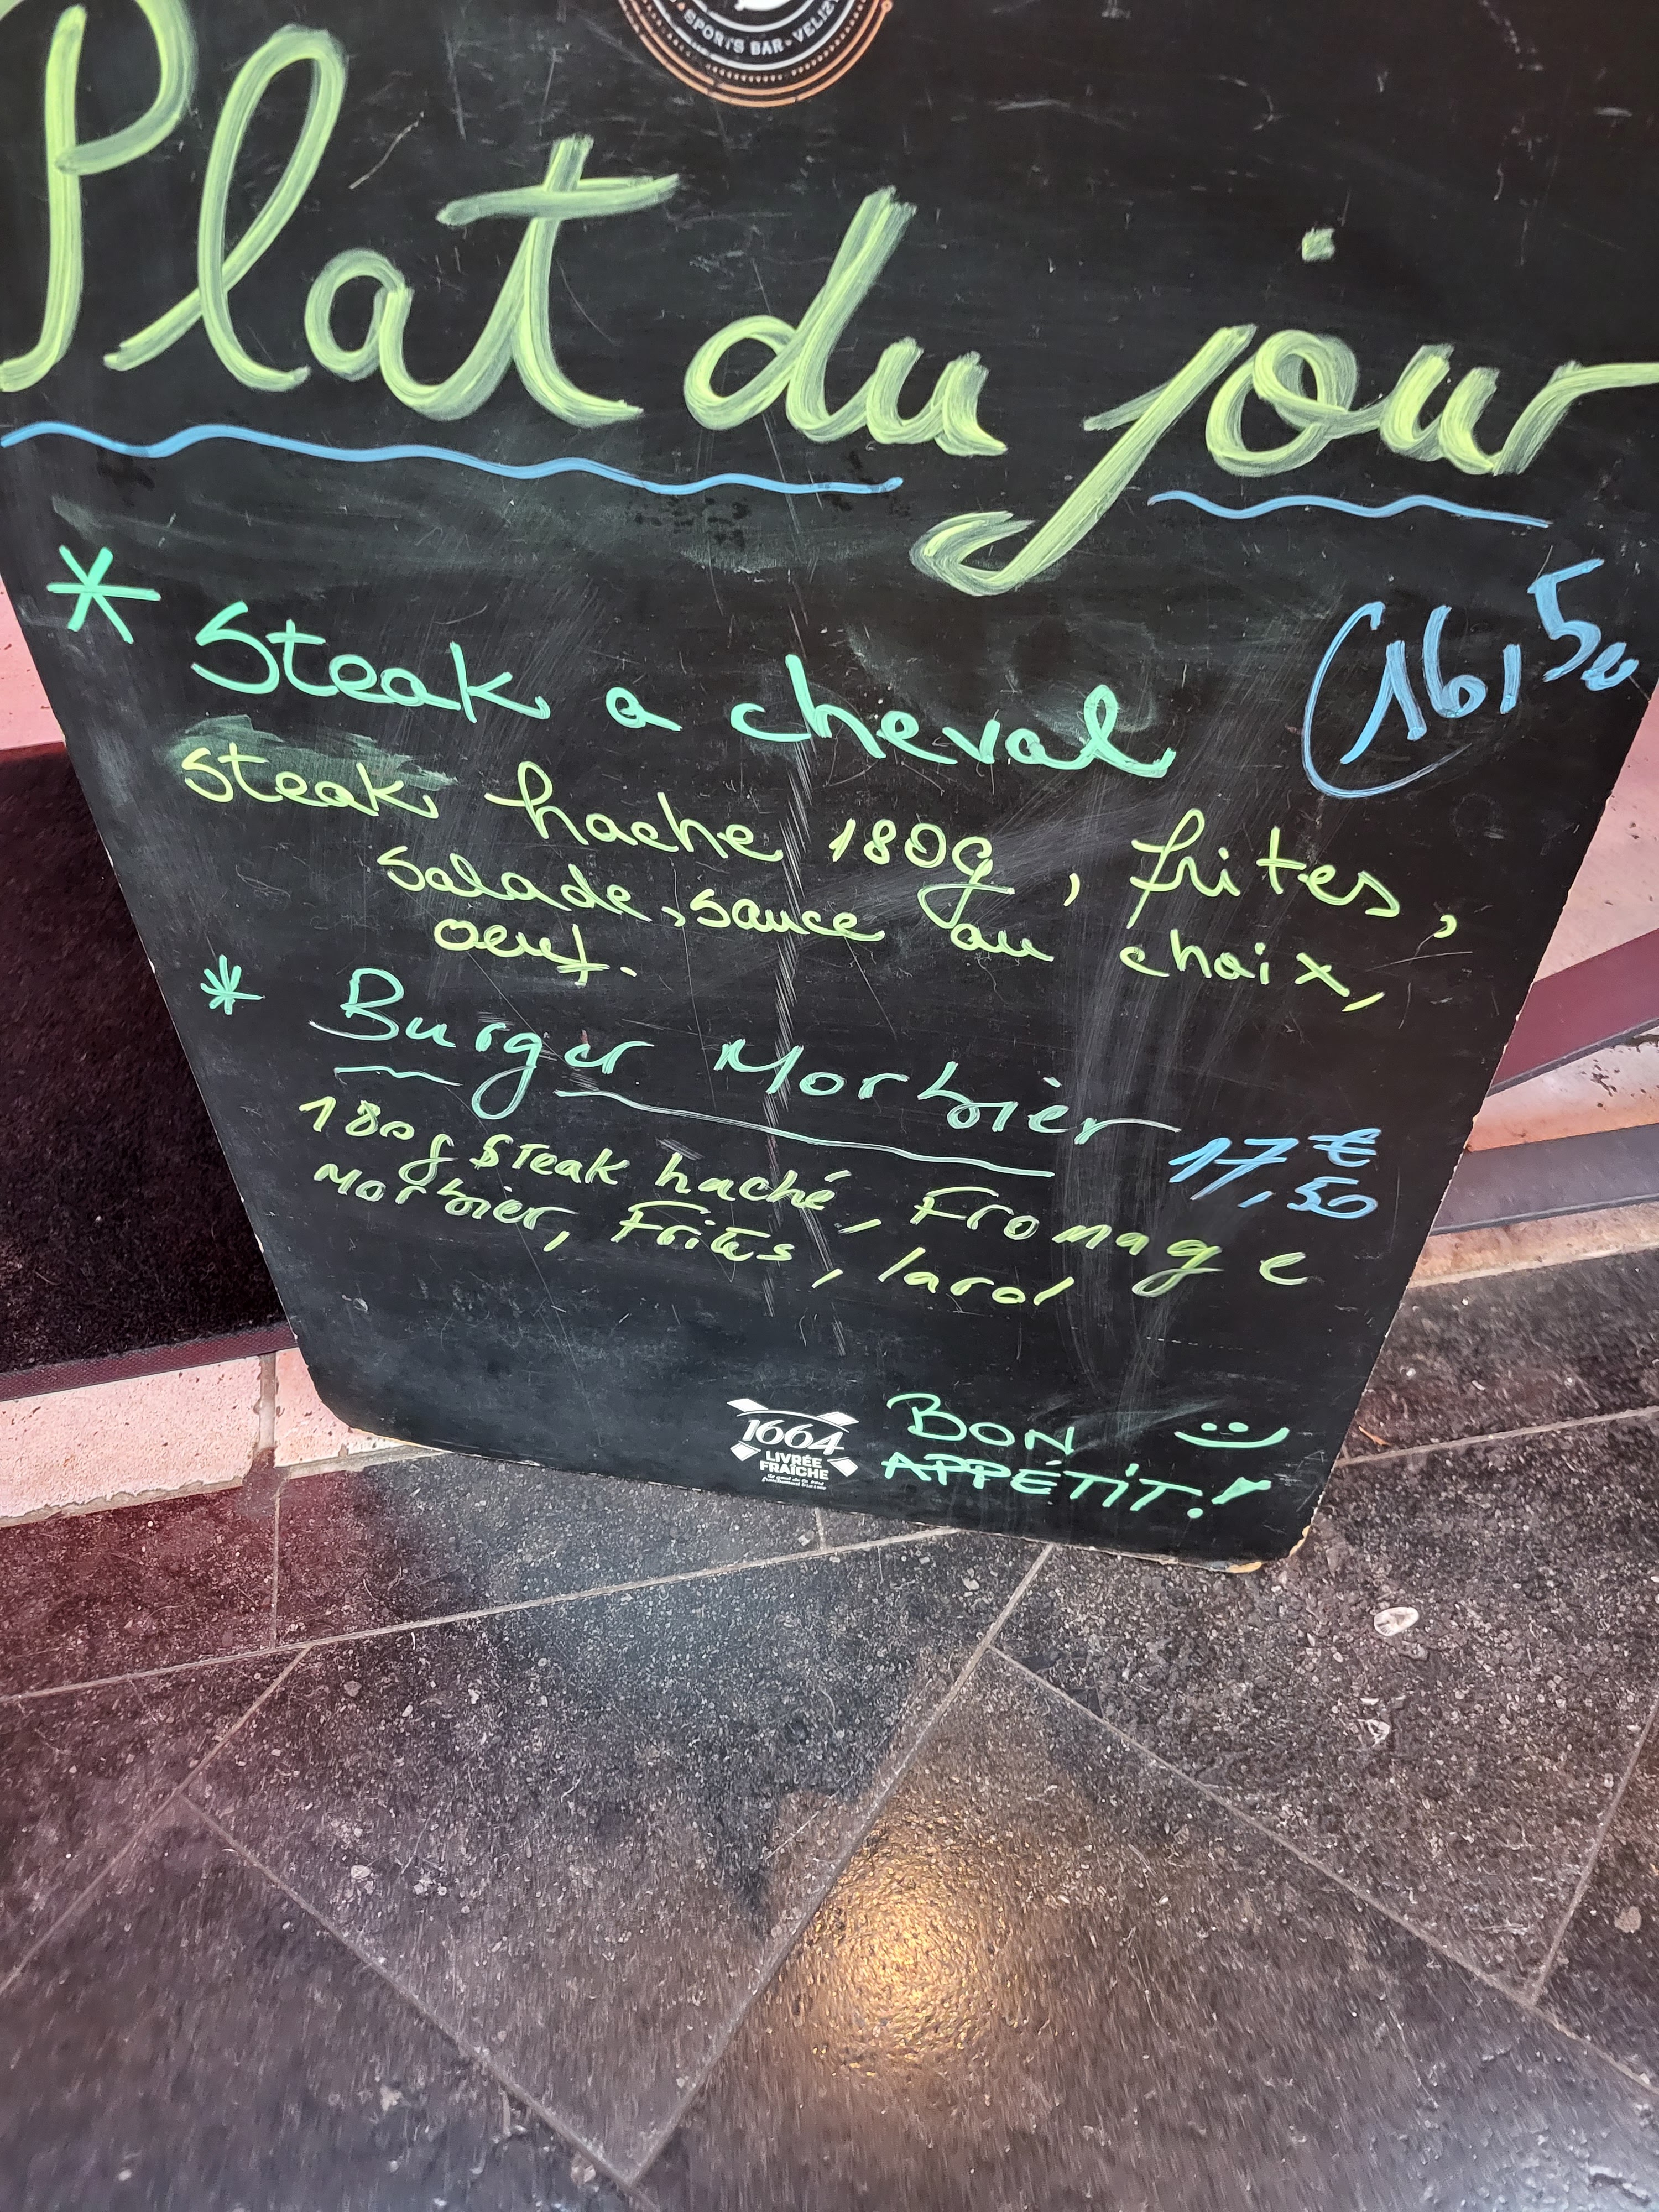 SPORTS BAR • VELIZY
Plat du jour
* Steak a cheval
16,50
Steak hache 180g, frites,
salade, sauce au choix,
oeuf.
* Burger Morbier
17,50 €
180g steak haché, Fromage
Morbier, Frites, lard
1664
LIVRÉE
FRAÎCHE
BON
APPÉTIT!